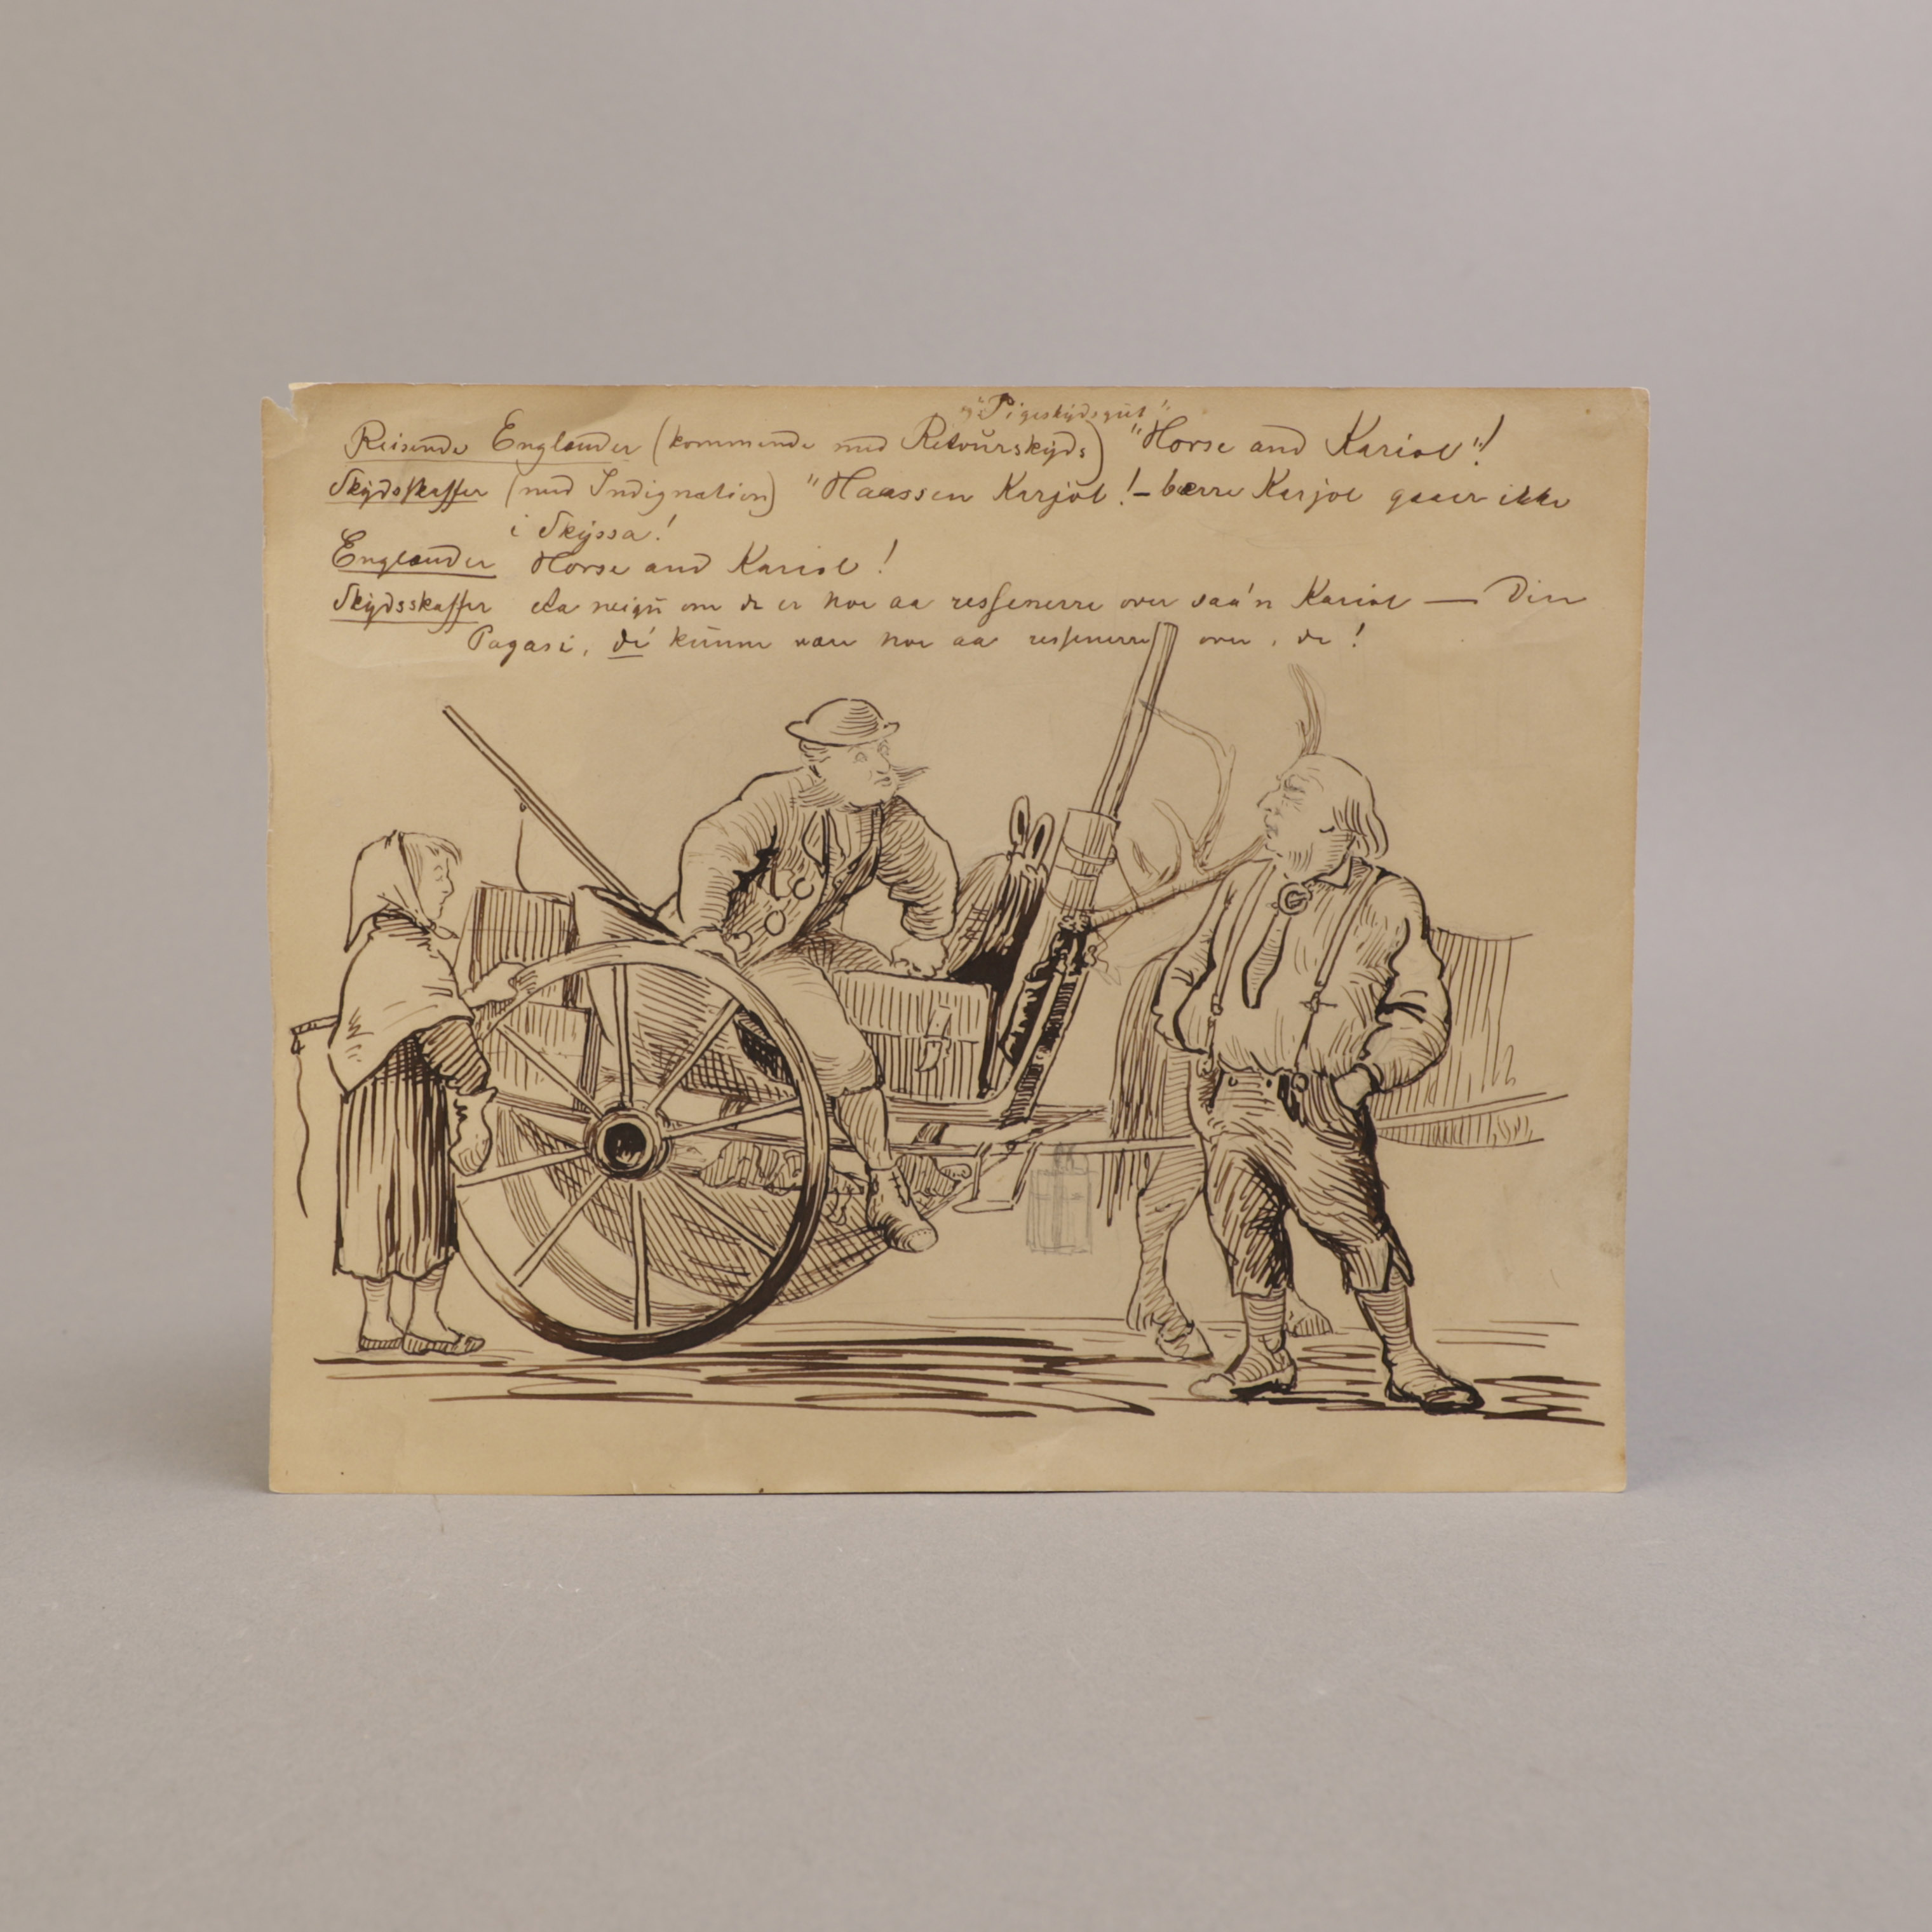 "Pigeskydsgut"
Reisende Englænder (kommende med Retourskyds) "Horse and Kariol"!
Skydsskaffer (med Indignation) "Haassen Karjol! – bærre Karjol gaaer ikke
i Skyssa!
Englænder Horse and Kariol!
Skydsskaffer Aa neigu om de er noe aa ressenerre over saa'n Kariol — Din
Pagasi, de' kunne være noe aa ressenerre over, de!